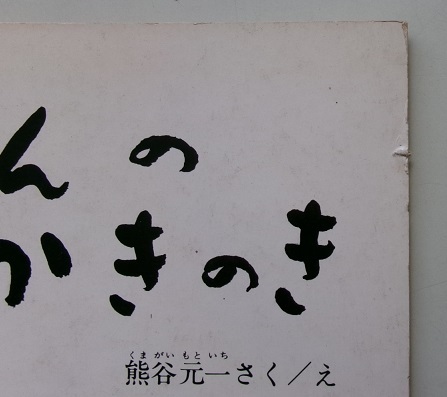 んの
かきのき
くまがい もといち
熊谷元一さく／え